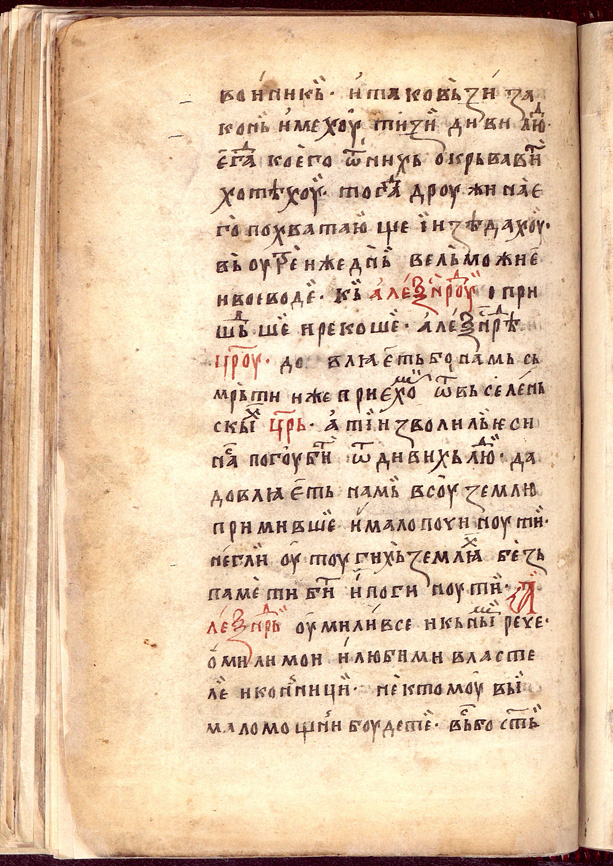 воиникь · и таковь зи за
конь имехоу тизи диви лю̑ⷣ
ега̑ⷣ коего ѿ нихь окрьвавити
хотѣхоу · тога̑ⷣ дроужина е
го похватающе и изѣдахоу ·
вь оутрⷭ҇е иже днь вельможне
и воеводе · кь але́ѯанⷣроу при
шⷣьше и рекоше · але́ѯанⷣре
цр҃оу · довлѧ еⷭ҇ть бо намь сь
мрьти иже приехоⷨ ѿ вьселень
скыⷯ цр҃ь · а ти изволиль еси
наⷭ҇ погоубити ѿ дивихь люⷣ · да
довлѧ еⷭ҇ть намь всоу землю
примивше и мало почин оути ·
негли оу тоугихь землꙗⷯ безь
памети бити и погиноути · А
ле́ѯанⷣрь оумили все и кь ниⷨ рече ·
о мили мои и любими власте
ле и коници · не ктомоу ви
маломощни боудете · вьⷭ҇ бо сⷮь